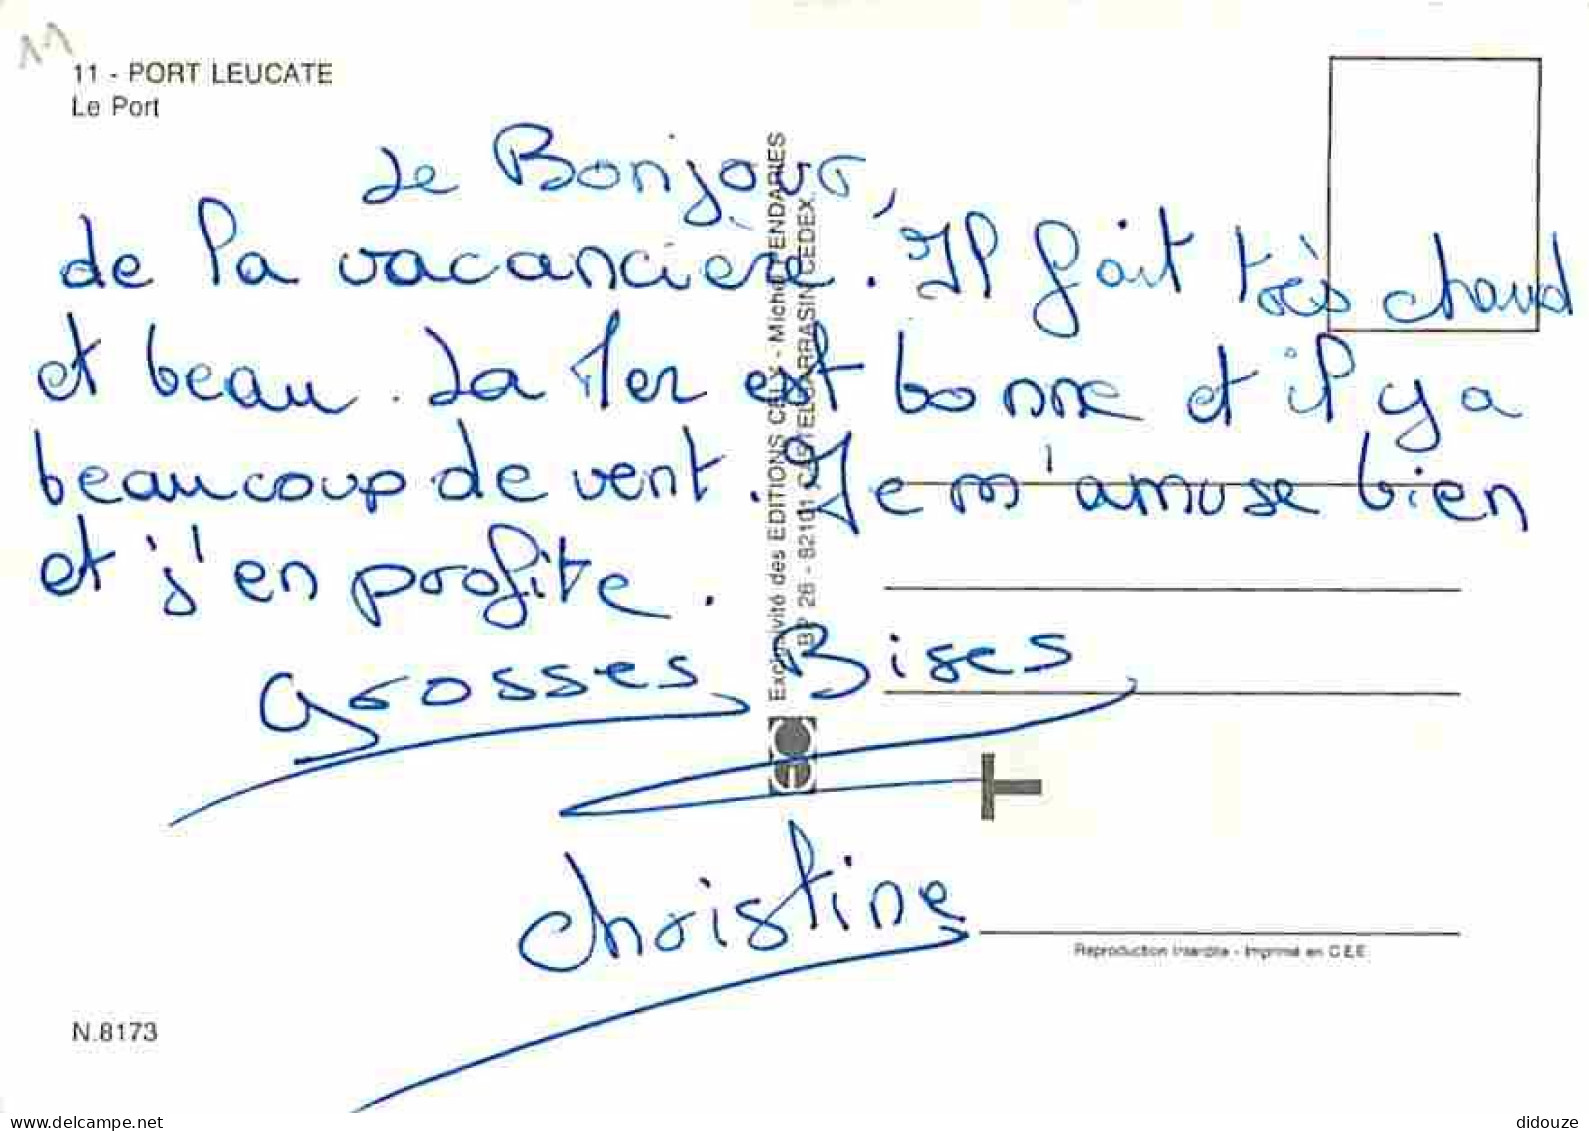 11
11 - PORT LEUCATE
Le Port
Le Bonjour,
de la vacancière. Il fait très chaud
et beau. La Mer est bonne et il y a
beaucoup de vent. Je m'amuse bien
et j'en profite.
Grosses Bises
Christine
Exclusivité des EDITIONS CELY - Michel
BP 26 - 82101 CASTELSARRASIN CEDEX
Reproduction Interdite - Imprimé en C.E.E.
N.8173
www.delcampe.net
didouze